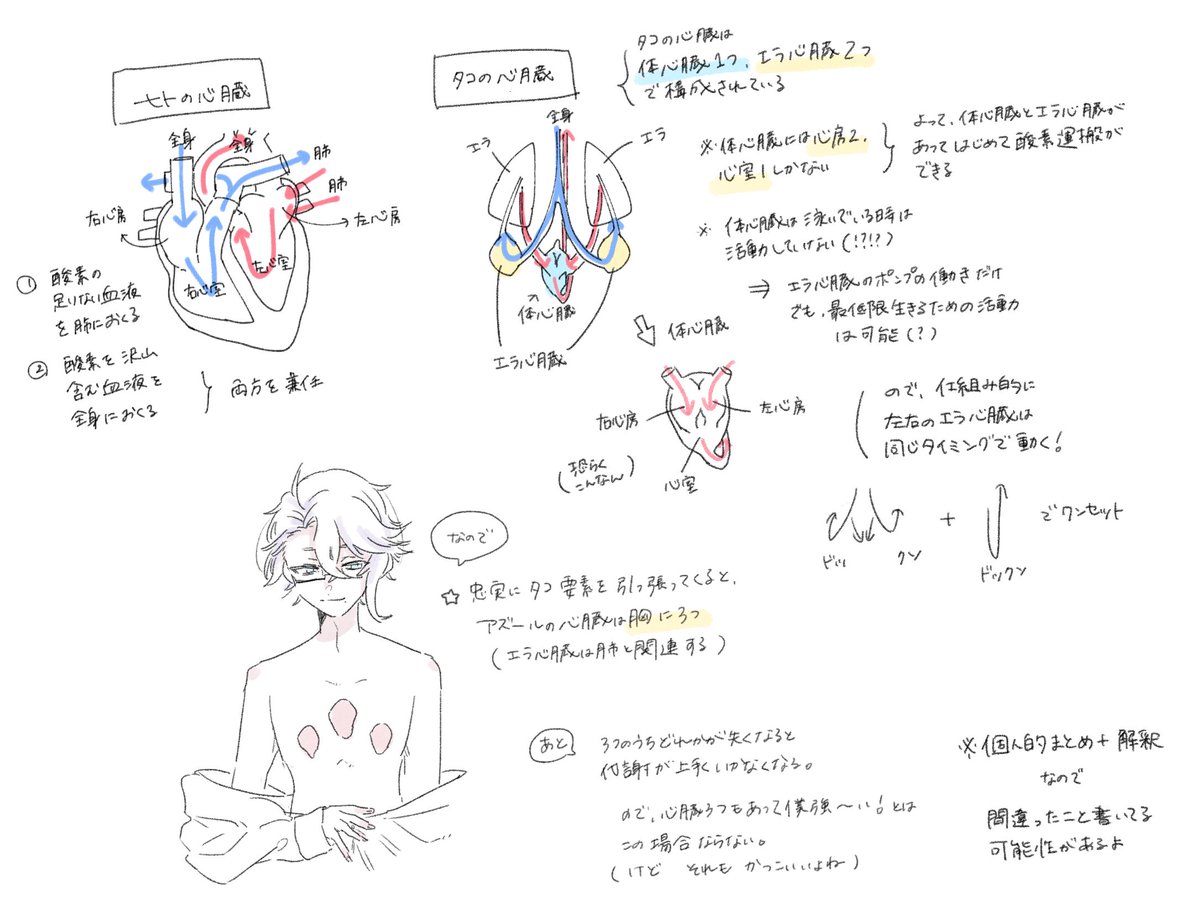 ヒトの心臓
全身
全身
肺
肺
右心房
左心房
右心室
左心室
① 酸素の
足りない血液
を肺におくる
② 酸素を沢山
含む血液を
全身におくる
両方を兼任
タコの心臓
全身
エラ
エラ
体心臓
エラ心臓
タコの心臓は
体心臓1つ、エラ心臓2つ
で構成されている
※体心臓には心房2、
心室1しかない
よって、体心臓とエラ心臓が
あってはじめて酸素運搬が
できる
※ 体心臓は泳いでいる時は
活動していない(!?!?)
⇒ エラ心臓のポンプの働きだけ
でも、最低限生きるための活動
は可能(?)
体心臓
右心房
左心房
心室
(恐らく
こんなん)
ので、仕組み的に
左右のエラ心臓は
同じタイミングで動く!
ドッ クン
+
ドックン
でワンセット
なので
☆ 忠実にタコ要素を引っ張ってくると、
アズールの心臓は胸に3つ
(エラ心臓は肺と関連する)
あと
3つのうちどれかが失くなると
代謝が上手くいかなくなる。
ので、心臓3つもあって僕強〜い!とは
この場合ならない。
(けど それもかっこいいよね)
※個人的まとめ+解釈
なので
間違ったこと書いてる
可能性があるよ